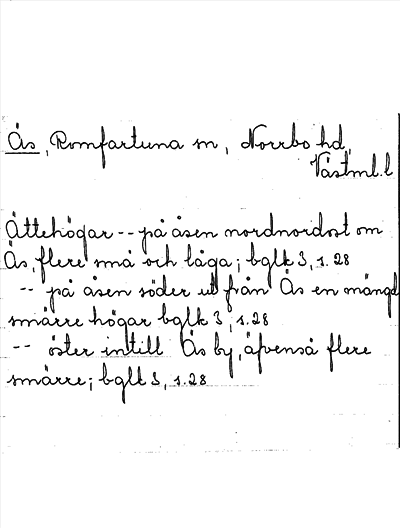 Ås, Romfartuna sn, Norrbo hd,
Västml.l
Ättehögar -- på åsen nordnordost om
Ås, flere små och låga; bglk 3, s. 28
-- på åsen söder ut från Ås en mängd
smärre högar bglk 3, s. 28
-- öster intill Ås by, äfvenså flere
smärre; bglk 3, s. 28